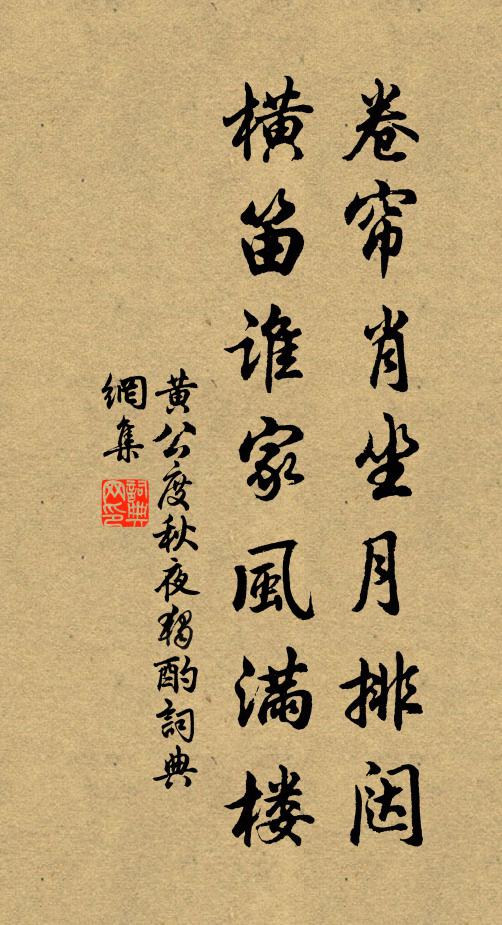 卷帘肖坐月排闼
横笛谁家風满楼
黄公度秋夜獨酌詞典
網集
詞典
网印